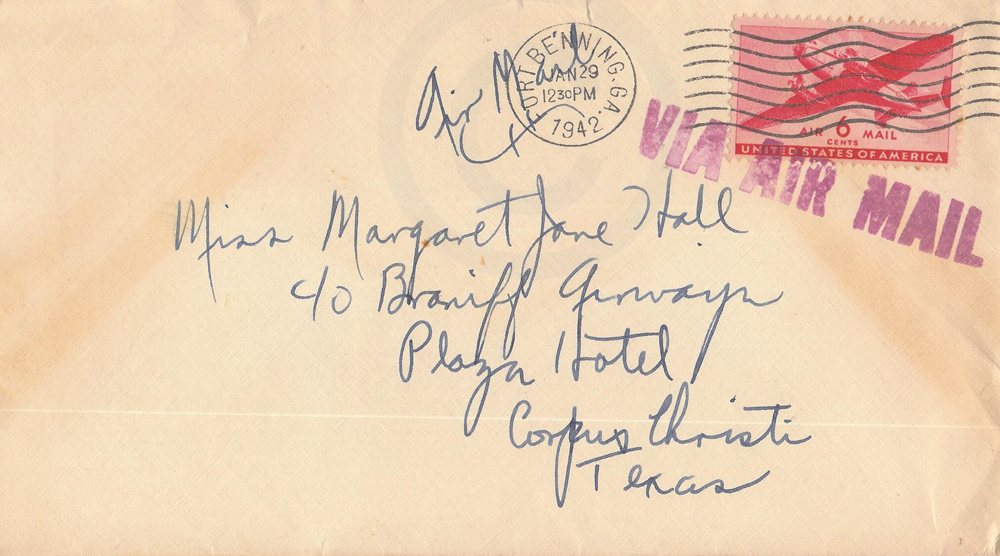 Air Mail
FORT BENNING, GA.
JAN 29
1230 PM
1942
AIR 6 MAIL
CENTS
UNITED STATES OF AMERICA
VIA AIR MAIL
Miss Margaret Jane Hall
c/o Braniff Airways
Plaza Hotel
Corpus Christi
Texas